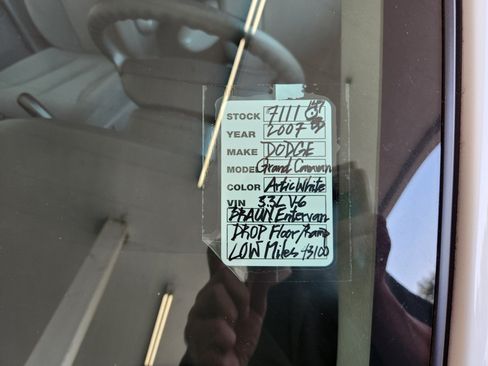 STOCK 7111
YEAR 2007
MAKE DODGE
MODEL Grand Caravan
COLOR Artic White
VIN 3.3L V6
BRAUN Entervan
DROP Floor/Ramp
LOW Miles